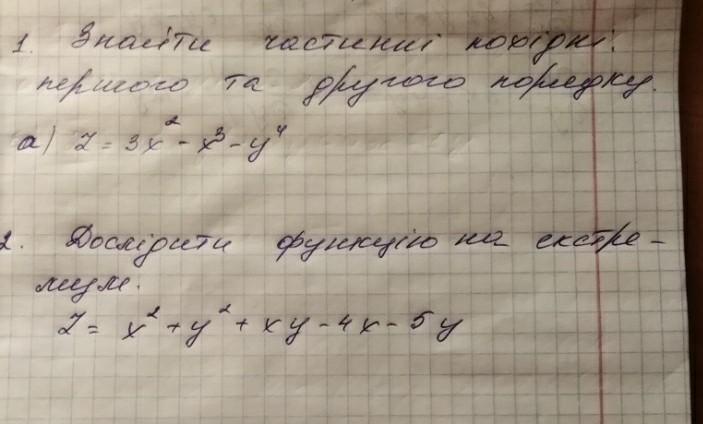 1. Знайти частинні похідні.
першого та другого порядку.
а) Z = 3x² - x³ - y⁴
2. Дослідити функцію на екстре-
мум.
Z = x² + y² + xy - 4x - 5y